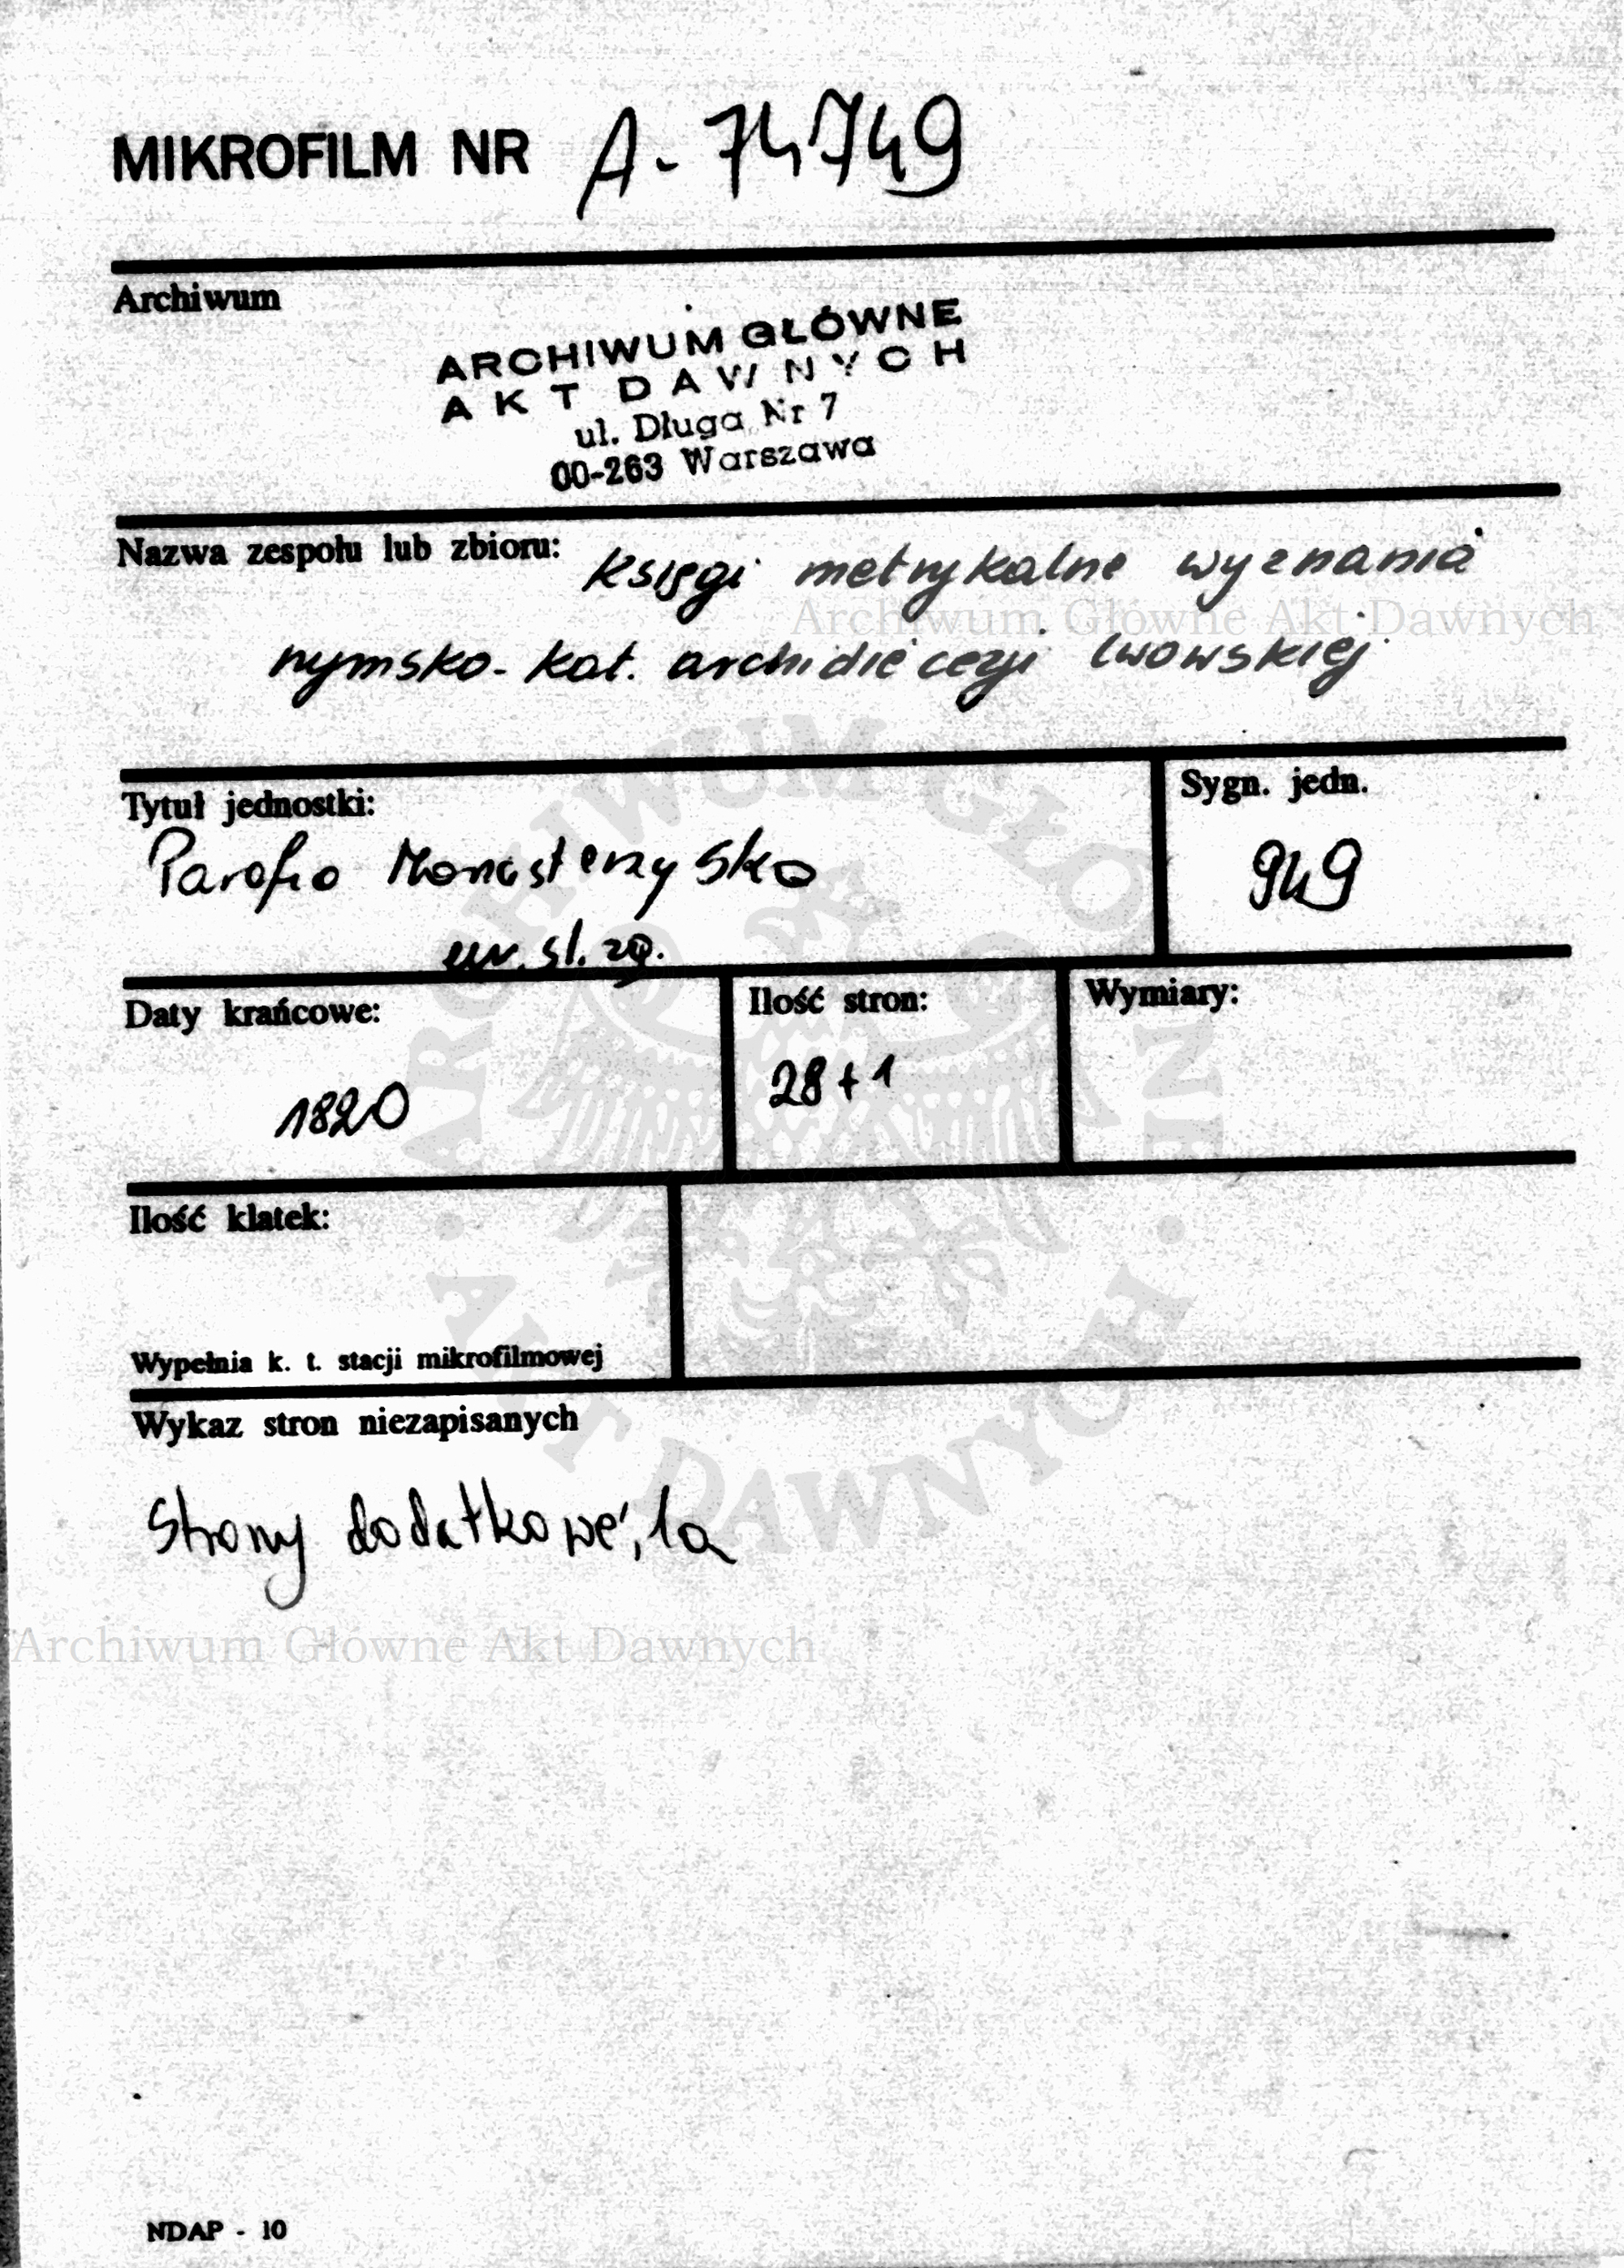 MIKROFILM NR A-74749
Archiwum
ARCHIWUM GŁÓWNE
AKT DAWNYCH
ul. Długa Nr 7
00-263 Warszawa
Nazwa zespołu lub zbioru: Księgi metrykalne wyznania
Archiwum Główne Akt Dawnych
rzymsko-kat. archidiecezji lwowskiej
Tytuł jednostki:
Sygn. jedn.
Parafia Monasterzyska
949
ur. śl. zg.
Daty krańcowe:
Ilość stron:
Wymiary:
1820
28+1
Ilość klatek:
Wypełnia k. t. stacji mikrofilmowej
Wykaz stron niezapisanych
Strony dodatkowe; 1a
Archiwum Główne Akt Dawnych
ARCHIWUM GŁÓWNE · AKT DAWNYCH ·
NDAP - 10